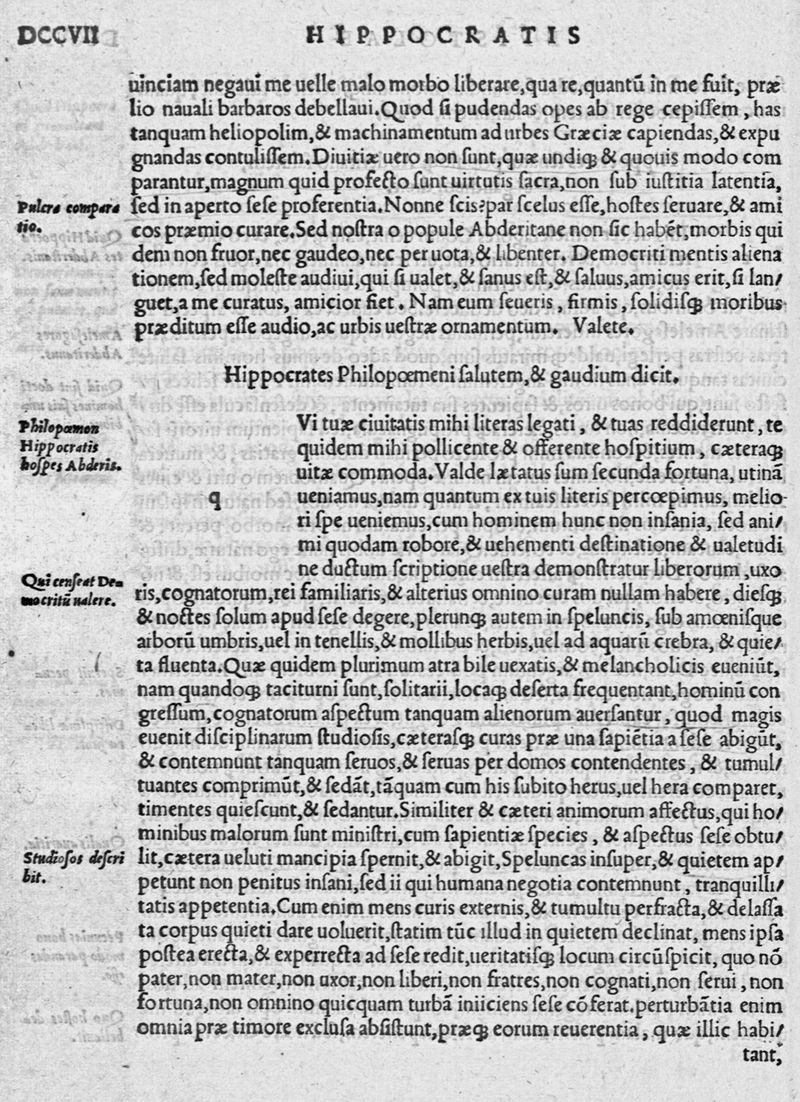 DCCVII HIPPOCRATIS
uinciam negaui me uelle malo morbo liberare,qua re,quantũ in me fuit, præ
lio nauali barbaros debellaui.Quod ſi pudendas opes ab rege cepiſſem , has
tanquam heliopolim,& machinamentum ad urbes Græciæ capiendas,& expu
gnandas contuliſſem.Diuitiæ uero non ſunt,quæ undiqꝫ & quouis modo com
parantur,magnum quid profecto ſunt uirtutis ſacra,non ſub iuſtitia latentia,
Pulcra compara
tio.
ſed in aperto ſeſe proferentia.Nonne ſcis?par ſcelus eſſe,hoſtes ſeruare,& ami
cos præmio curare.Sed noſtra o popule Abderitane non ſic habẽt,morbis qui
dem non fruor,nec gaudeo,nec per uota,& libenter. Democriti mentis aliena
tionem,ſed moleſte audiui,qui ſi ualet,& ſanus eſt,& ſaluus,amicus erit,ſi lan/
guet,a me curatus, amicior fiet . Nam eum ſeueris , firmis , ſolidiſqꝫ moribus
præditum eſſe audio,ac urbis ueſtræ ornamentum. Valete.
Hippocrates Philopœmeni ſalutem,& gaudium dicit.
Philopœmon
Hippocratis
hoſpes Abderis.
q
Vi tuæ ciuitatis mihi literas legati , & tuas reddiderunt , te
quidem mihi pollicente & offerente hoſpitium , cæteraqꝫ
uitæ commoda.Valde lætatus ſum ſecunda fortuna, utinã
ueniamus,nam quantum ex tuis literis percœpimus, melio-
ri ſpe ueniemus,cum hominem hunc non inſania, ſed ani/
mi quodam robore,& uehementi deſtinatione & ualetudi
ne ductum ſcriptione ueſtra demonſtratur liberorum ,uxo
Qui cenſeat De=
mocritũ ualere.
ris,cognatorum,rei familiaris,& alterius omnino curam nullam habere , dieſqꝫ
& noctes ſolum apud ſeſe degere,plerunqꝫ autem in ſpeluncis, ſub amœniſque
arborũ umbris,uel in tenellis,& mollibus herbis,uel ad aquarũ crebra, & quie/
ta fluenta.Quæ quidem plurimum atra bile uexatis,& melancholicis eueniũt,
nam quandoqꝫ taciturni ſunt,ſolitarii,locaqꝫ deſerta frequentant,hominũ con
greſſum,cognatorum aſpectum tanquam alienorum auerſantur, quod magis
euenit diſciplinarum ſtudioſis,cæteraſqꝫ curas præ una ſapiẽtia a ſeſe abigũt,
& contemnunt tanquam ſeruos,& ſeruas per domos contendentes , & tumul/
tuantes comprimũt,& ſedãt,tãquam cum his ſubito herus,uel hera comparet,
timentes quieſcunt,& ſedantur.Similiter & cæteri animorum affectus,qui ho/
minibus malorum ſunt miniſtri,cum ſapientiæ ſpecies , & aſpectus ſeſe obtu/
Studioſos deſcri
bit.
lit,cætera ueluti mancipia ſpernit,& abigit,Speluncas inſuper,& quietem ap/
petunt non penitus inſani,ſed ii qui humana negotia contemnunt , tranquilli/
tatis appetentia.Cum enim mens curis externis,& tumultu perfracta,& delaſſa
ta corpus quieti dare uoluerit,ſtatim tũc illud in quietem declinat, mens ipſa
poſtea erecta,& experrecta ad ſeſe redit,ueritatiſqꝫ locum circũſpicit, quo nõ
pater,non mater,non uxor,non liberi,non fratres,non cognati,non ſerui , non
fortuna,non omnino quicquam turbã iniiciens ſeſe cõferat.perturbãtia enim
omnia præ timore excluſa abſiſtunt,præqꝫ eorum reuerentia , quæ illic habi/
tant,